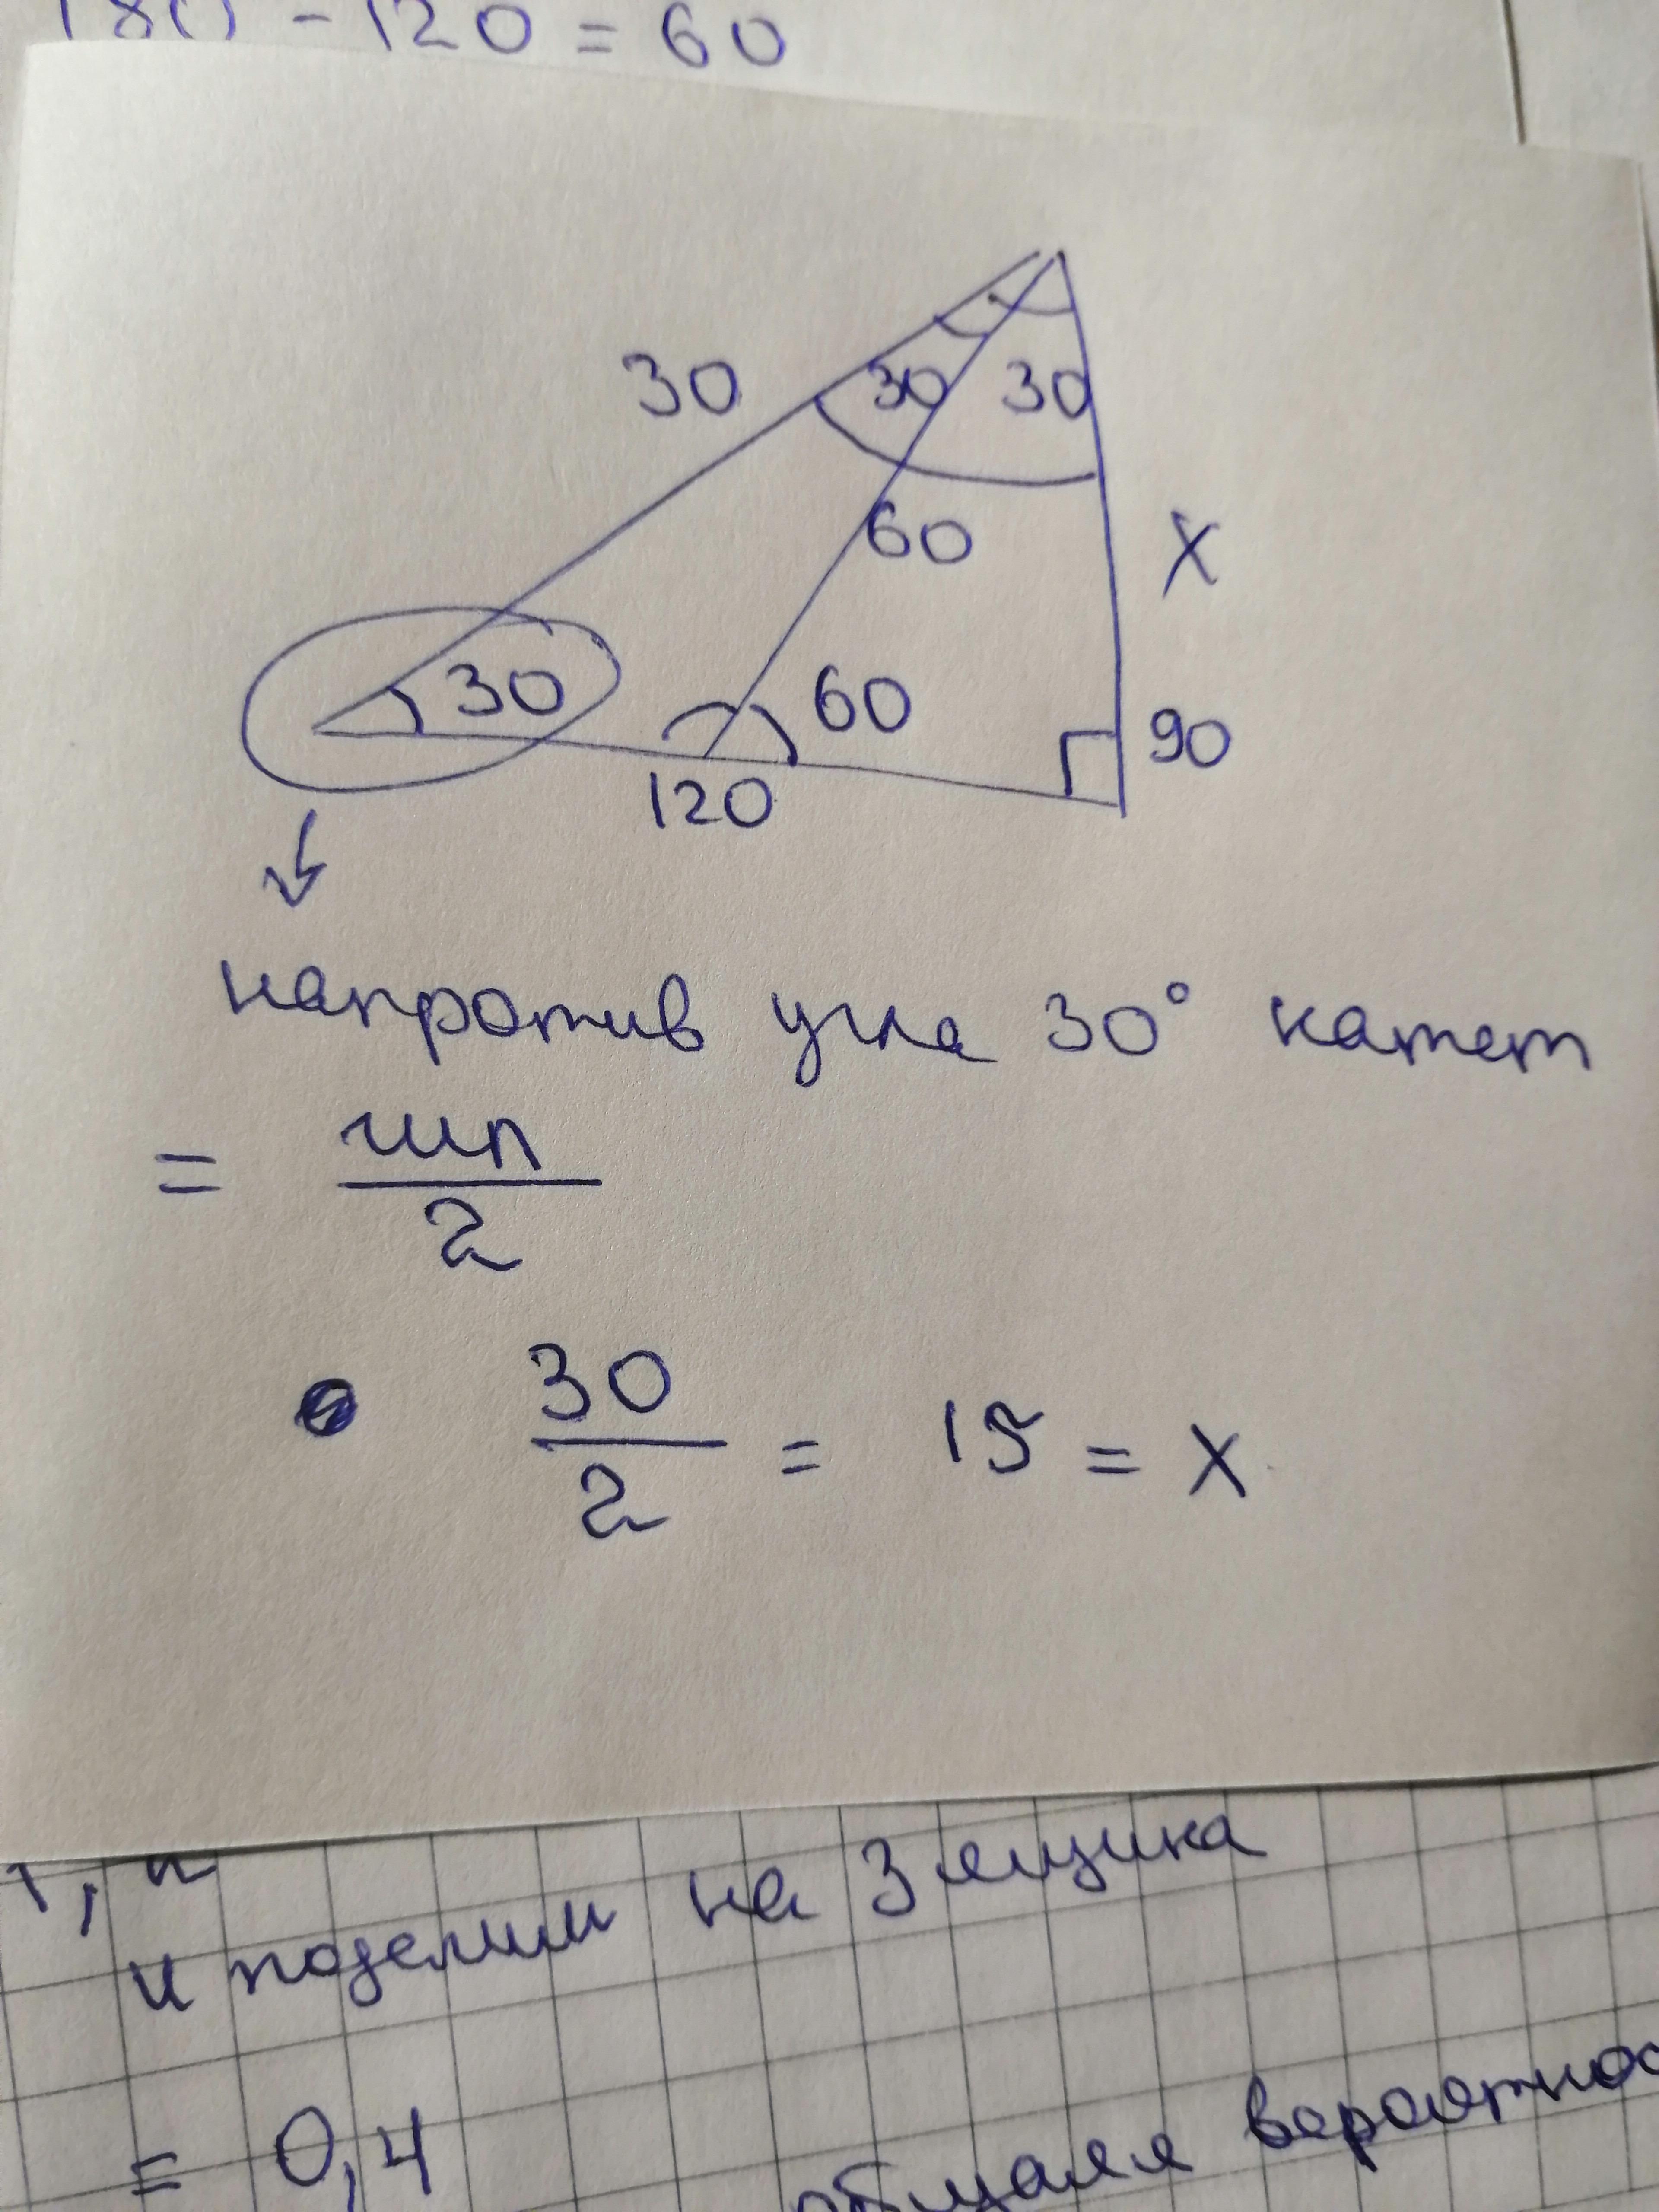 180 - 120 = 60
30
30 30
60
X
30
60
90
120
напротив угла 30° катет
= гип
2
30
2
= 15 = X
и поделим на 3 ящика
= 0,4
общая вероятнос